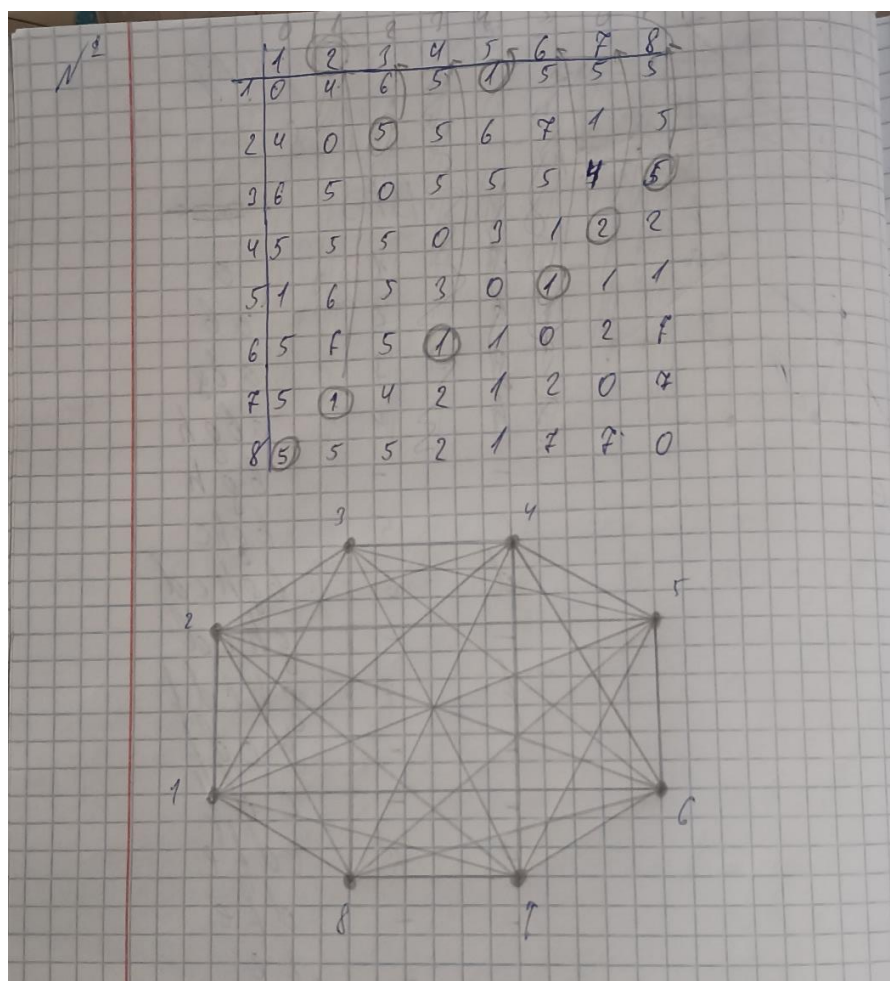 N 1
1 2 3 4 5 6 7 8
1 0 4 6 5 1 5 5 5
2 4 0 5 5 6 7 1 5
3 6 5 0 5 5 5 4 5
4 5 5 5 0 3 1 2 2
5 1 6 5 3 0 1 1 1
6 5 7 5 1 1 0 2 7
7 5 1 4 2 1 2 0 7
8 5 5 5 2 1 7 7 0
3 4
2 5
1 6
8 7